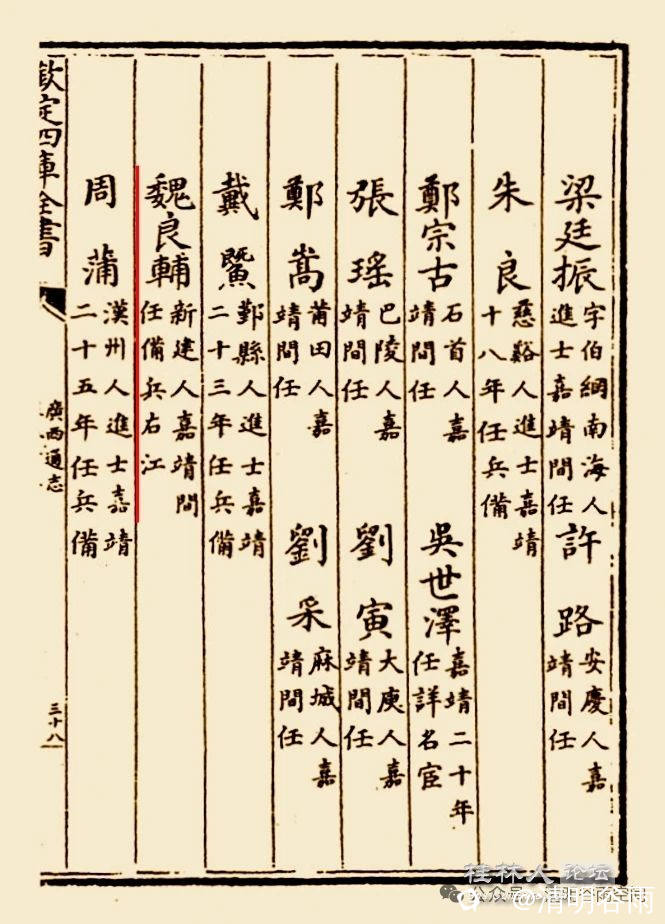 梁廷振 字伯綱南海人進士嘉靖間任 許路 安慶人嘉靖間任
朱良 慈谿人進士嘉靖十八年任兵備
鄭宗古 石首人嘉靖間任 吳世澤 嘉靖二十年任詳名宦
張瑤 巴陵人嘉靖間任 劉寅 大庾人嘉靖間任
鄭嵩 莆田人嘉靖間任 劉采 麻城人嘉靖間任
戴鱀 鄞縣人進士嘉靖二十三年任兵備
魏良輔 新建人嘉靖間任備兵右江
周蒲 漢州人進士嘉靖二十五年任兵備
欽定四庫全書
廣西通志
三十八
桂林人论坛
公众号
@清明谷雨